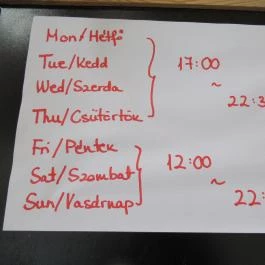 Mon/Hétfő
Tue/Kedd
Wed/Szerda
Thu/Csütörtök
17:00
~
22:3
Fri/Péntek
Sat/Szombat
Sun/Vasárnap
12:00
~
22: